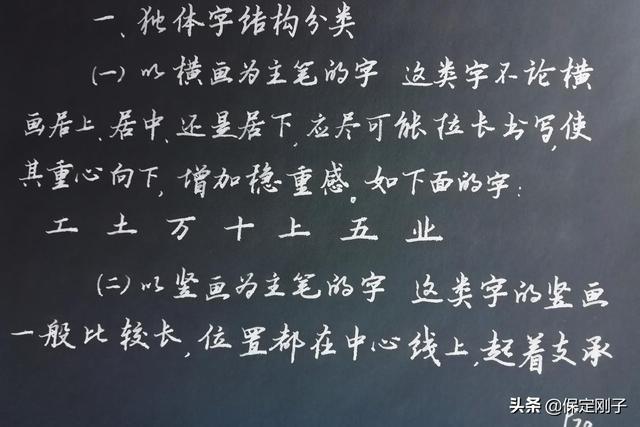 一、独体字结构分类
(一)以横画为主笔的字 这类字不论横
画居上、居中、还是居下,应尽可能拉长书写,使
其重心向下,增加稳重感。如下面的字:
工 土 万 十 上 五 业
(二)以竖画为主笔的字 这类字的竖画
一般比较长,位置都在中心线上,起着支承
头条 @保定刚子